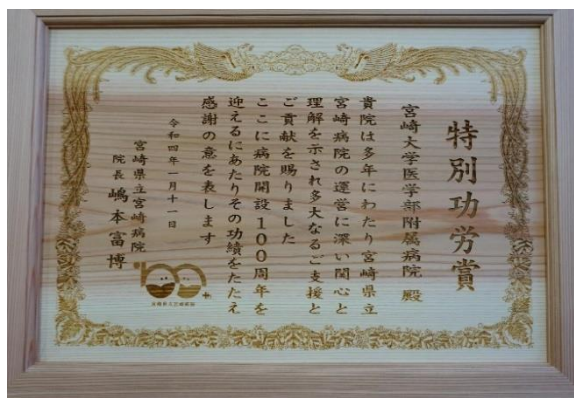 特別功労賞
宮崎大学医学部附属病院 殿
貴院は多年にわたり宮崎県立
宮崎病院の運営に深い関心と
理解を示され多大なるご支援と
ご貢献を賜りました
ここに病院開設100周年を
迎えるにあたりその功績をたたえ
感謝の意を表します
令和四年一月十一日
宮崎県立宮崎病院
院長 嶋本富博
100